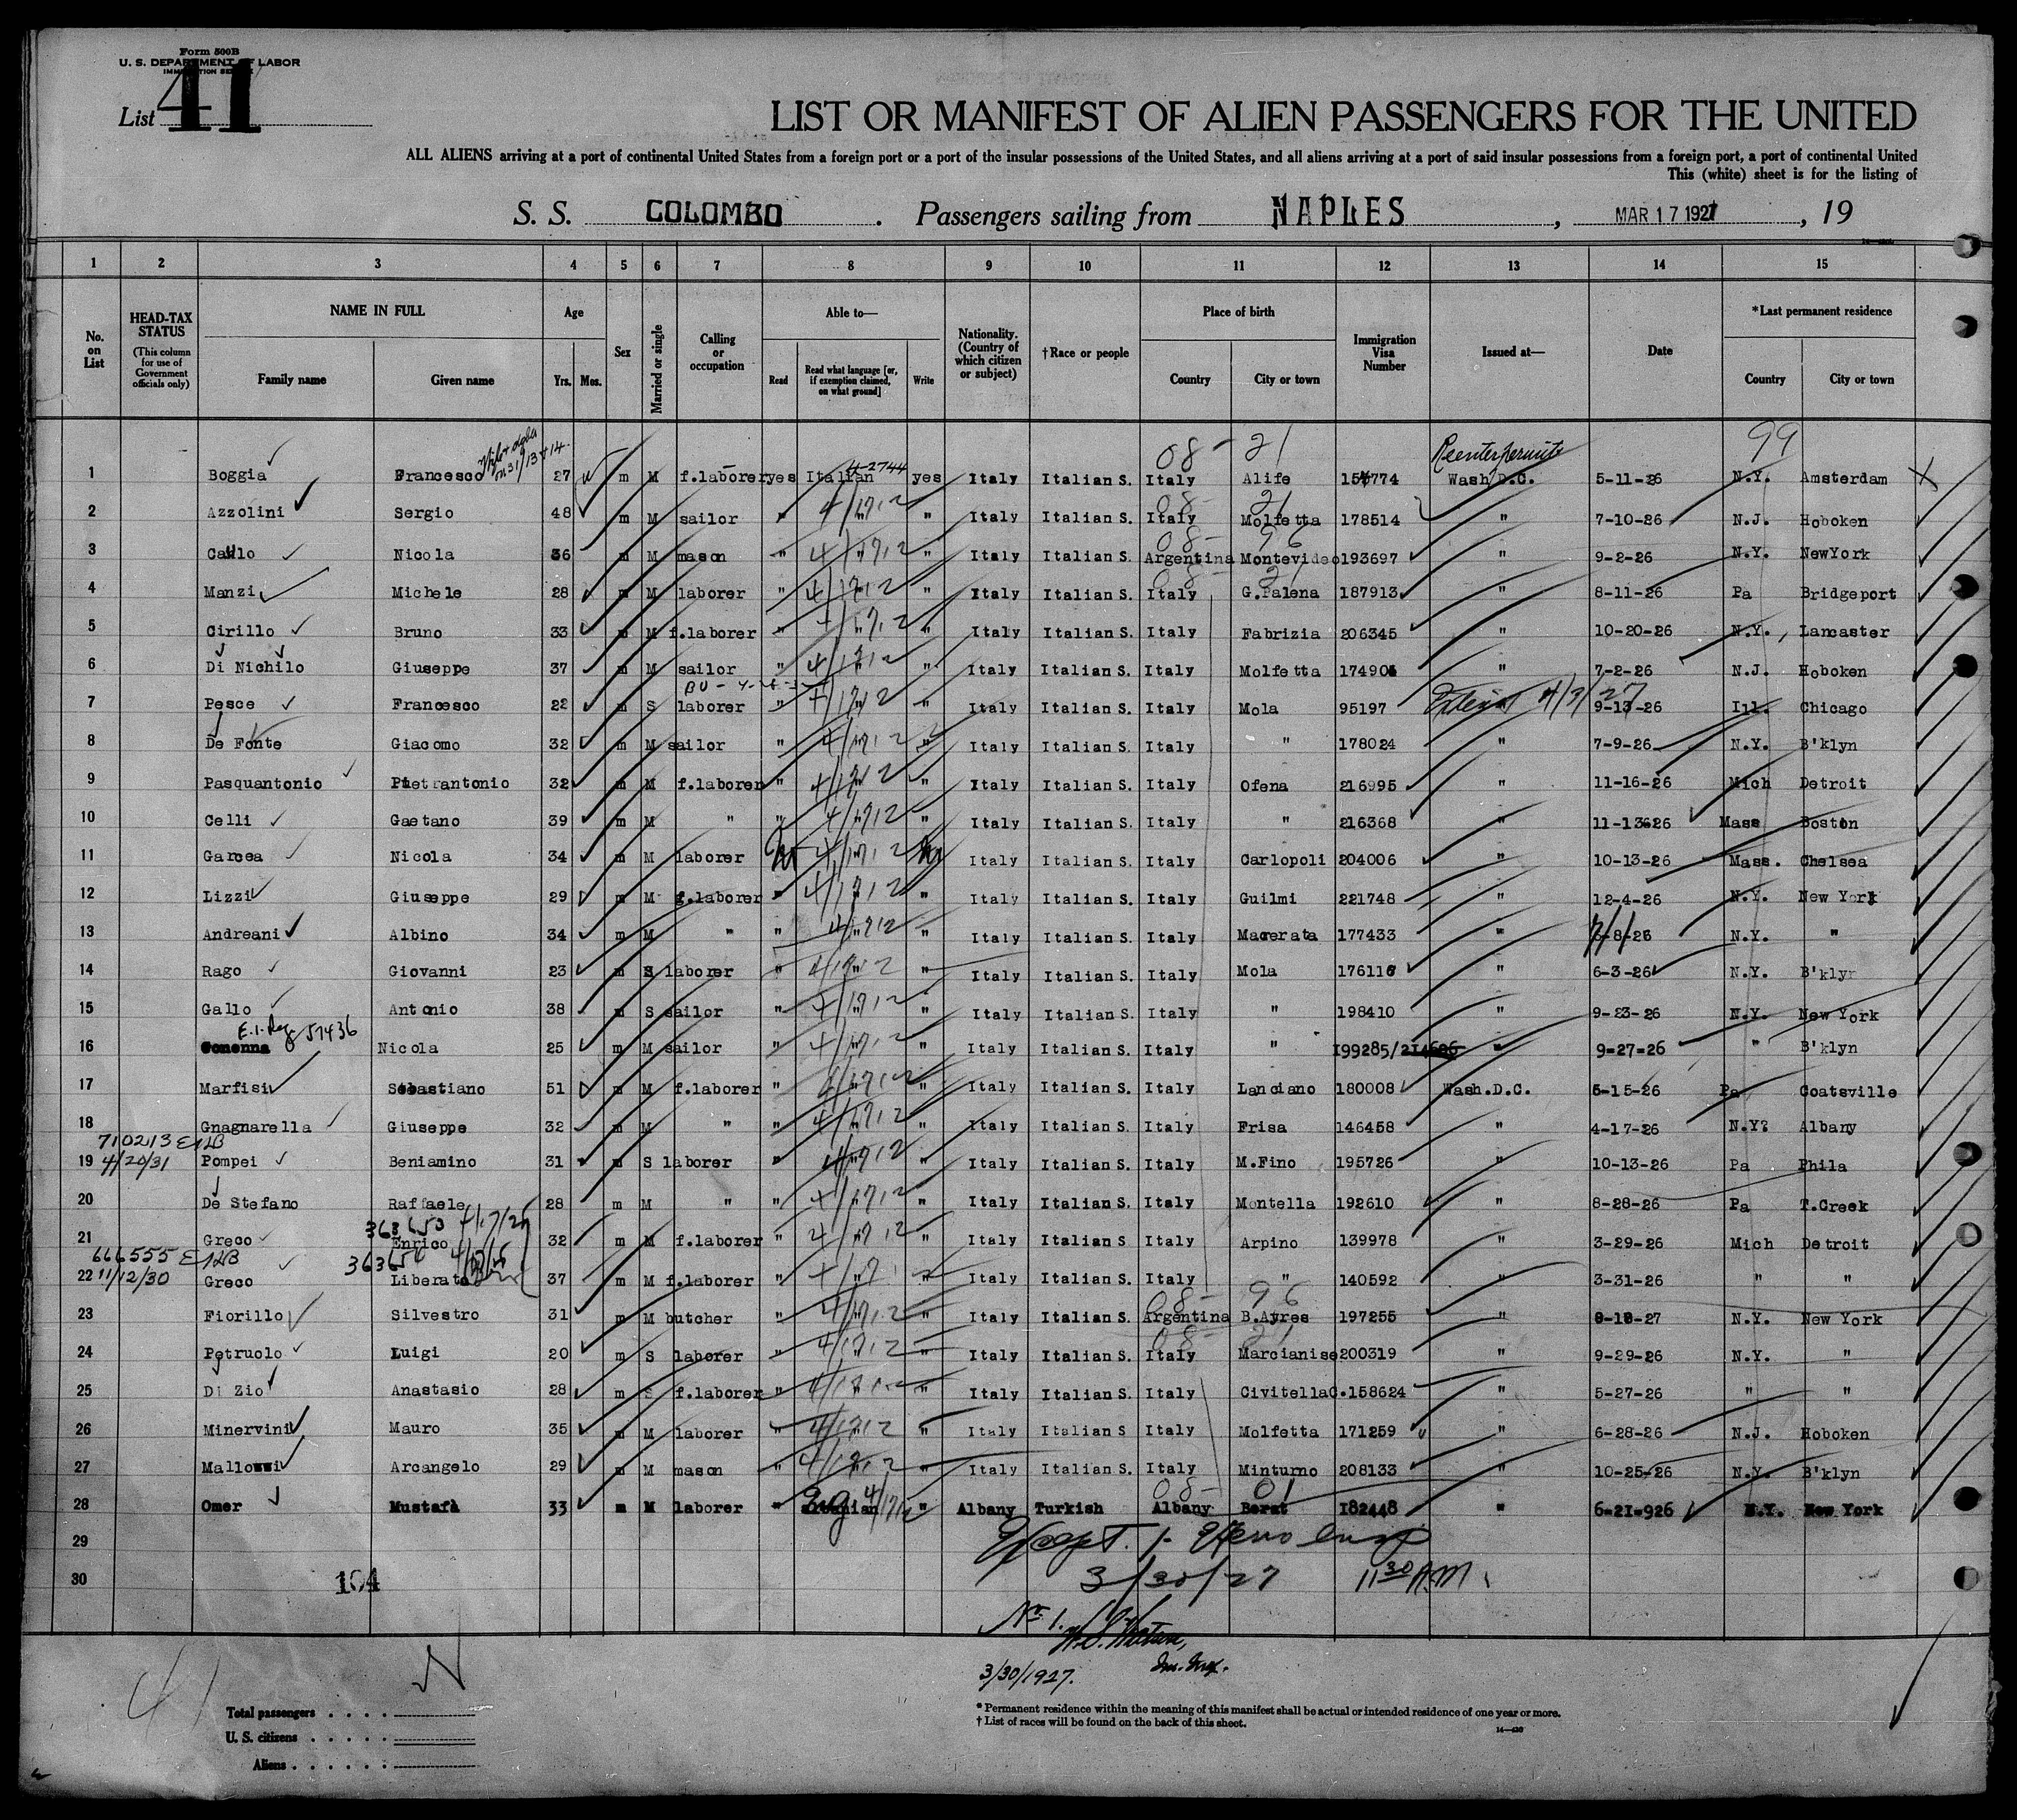 Form 500B
U. S. DEPARTMENT OF LABOR
IMMIGRATION SERVICE
List 41
LIST OR MANIFEST OF ALIEN PASSENGERS FOR THE UNITED
ALL ALIENS arriving at a port of continental United States from a foreign port or a port of the insular possessions of the United States, and all aliens arriving at a port of said insular possessions from a foreign port, a port of continental United
This (white) sheet is for the listing of
S. S. COLOMBO. Passengers sailing from NAPLES, MAR 17 1927, 19
1 2 3 4 5 6 7 8 9 10 11 12 13 14 15
No. on List
HEAD-TAX STATUS (This column for use of Government officials only)
NAME IN FULL Family name Given name
Age Yrs. Mos.
Sex
Married or single
Calling or occupation
Able to— Read Read what language [or, if exemption claimed, on what ground] Write
Nationality. (Country of which citizen or subject)
†Race or people
Place of birth Country City or town
Immigration Visa Number
Issued at—
Date
*Last permanent residence Country City or town
08- 21 Reenter permits 99
1 Boggia Francesco 27 m M f.laborer yes Italian yes Italy Italian S. Italy Alife 154774 Wash.D.C. 5-11-26 N.Y. Amsterdam
2 Azzolini Sergio 48 m M sailor " " " Italy Italian S. Italy Molfetta 178514 " 7-10-26 N.J. Hoboken
3 Nicola 36 m M mason " " " Italy Italian S. Argentina Montevideo 193697 " 9-2-26 N.Y. NewYork
4 Manzi Michele 28 m M laborer " " " Italy Italian S. Italy G.Palena 187913 " 8-11-26 Pa Bridgeport
5 Cirillo Bruno 33 m M f.laborer " " " Italy Italian S. Italy Fabrizia 206345 " 10-20-26 N.Y. Lancaster
6 Di Nichilo Giuseppe 37 m M sailor " " " Italy Italian S. Italy Molfetta 174901 " 7-2-26 N.J. Hoboken
7 Pesce Francesco 22 m S laborer " " " Italy Italian S. Italy Mola 95197 9-13-26 Ill. Chicago
8 De Fonte Giacomo 32 m M sailor " " " Italy Italian S. Italy " 178024 " 7-9-26 N.Y. B'klyn
9 Pasquantonio Pietrantonio 32 m M f.laborer " " " Italy Italian S. Italy Ofena 216995 " 11-16-26 Mich Detroit
10 Celli Gaetano 39 m M " " " " Italy Italian S. Italy " 216368 " 11-13-26 Mass Boston
11 Garcea Nicola 34 m M laborer Italy Italian S. Italy Carlopoli 204006 " 10-13-26 Mass. Chelsea
12 Lizzi Giuseppe 29 m M f.laborer " " " Italy Italian S. Italy Guilmi 221748 " 12-4-26 N.Y. New York
13 Andreani Albino 34 m M " " " " Italy Italian S. Italy Macerata 177433 " N.Y. "
14 Rago Giovanni 23 m S laborer " " " Italy Italian S. Italy Mola 176116 " 6-3-26 N.Y. B'klyn
15 Gallo Antonio 38 m S sailor " " " Italy Italian S. Italy " 198410 " 9-23-26 N.Y. New York
E.I. Reg 57436
16 Conenna Nicola 25 m M sailor " " " Italy Italian S. Italy " 199285/214606 " 9-27-26 " B'klyn
17 Marfisi Sebastiano 51 m M f.laborer " " " Italy Italian S. Italy Lanciano 180008 Wash.D.C. 5-15-26 Pa Coatsville
18 Gnagnarella Giuseppe 32 m M " " " " Italy Italian S. Italy Frisa 146458 " 4-17-26 N.Y? Albany
710213
19 4/20/31 Pompei Beniamino 31 m S laborer " " " Italy Italian S. Italy M.Fino 195726 " 10-13-26 Pa Phila
20 De Stefano Raffaele 28 m M " " " " Italy Italian S. Italy Montella 192610 " 8-28-26 Pa T.Creek
363653
21 Greco Enrico 32 m M f.laborer " " " Italy Italian S. Italy Arpino 139978 " 3-29-26 Mich Detroit
666555 363654
22 11/12/30 Greco Liberato 37 m M f.laborer " " " Italy Italian S. Italy " 140592 " 3-31-26 " "
08- 96
23 Fiorillo Silvestro 31 m M butcher " " " Italy Italian S. Argentina B.Ayres 197255 " N.Y. New York
24 Petruolo Luigi 20 m S laborer " " " Italy Italian S. Italy Marcianise 200319 " 9-29-26 N.Y. "
25 Di Zio Anastasio 28 m S f.laborer " " " Italy Italian S. Italy CivitellaC. 158624 " 5-27-26 " "
26 Minervini Mauro 35 m M laborer " " " Italy Italian S Italy Molfetta 171259 " 6-28-26 N.J. Hoboken
27 Mallozzi Arcangelo 29 m M mason " " " Italy Italian S. Italy Minturno 208133 " 10-25-26 N.Y. B'klyn
08- 01
28 Omer Mustafà 33 m M laborer " albanian " Albany Turkish Albany Berat 182448 " 6-21-926 N.Y. New York
29
30 104
3/30/27 11 30 AM
No 1.
3/30/1927. Im. Insp.
41 N
Total passengers
U. S. citizens
Aliens
* Permanent residence within the meaning of this manifest shall be actual or intended residence of one year or more.
† List of races will be found on the back of this sheet.